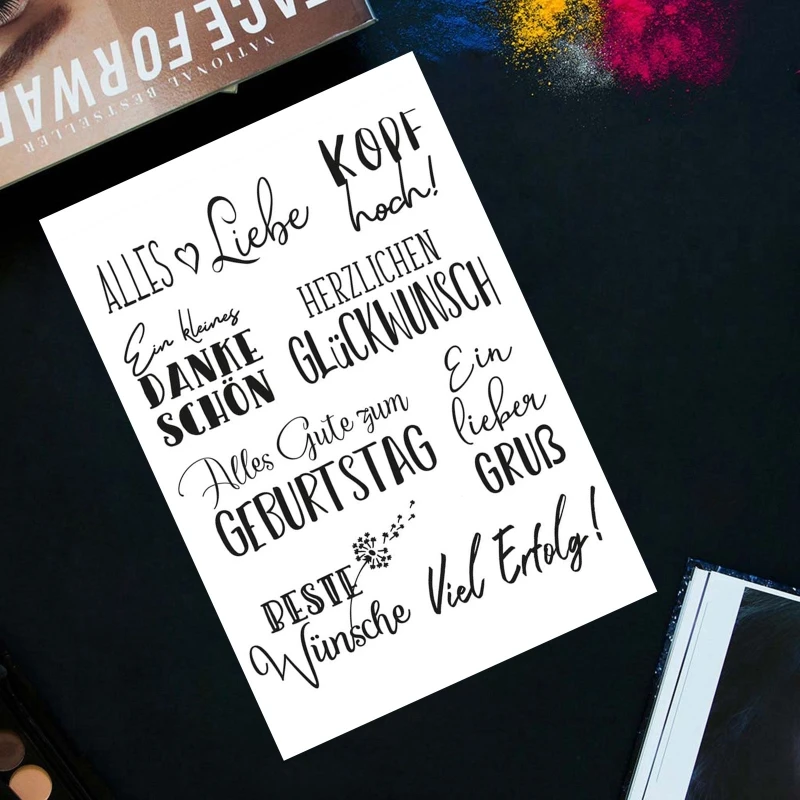 FACE FORWARD
NATIONAL BESTSELLER
KOPF
hoch!
ALLES Liebe
HERZLICHEN
GLÜCKWUNSCH
Ein kleines
DANKE
SCHÖN
Ein
lieber
GRUß
Alles Gute zum
GEBURTSTAG
BESTE
Wünsche
Viel Erfolg!